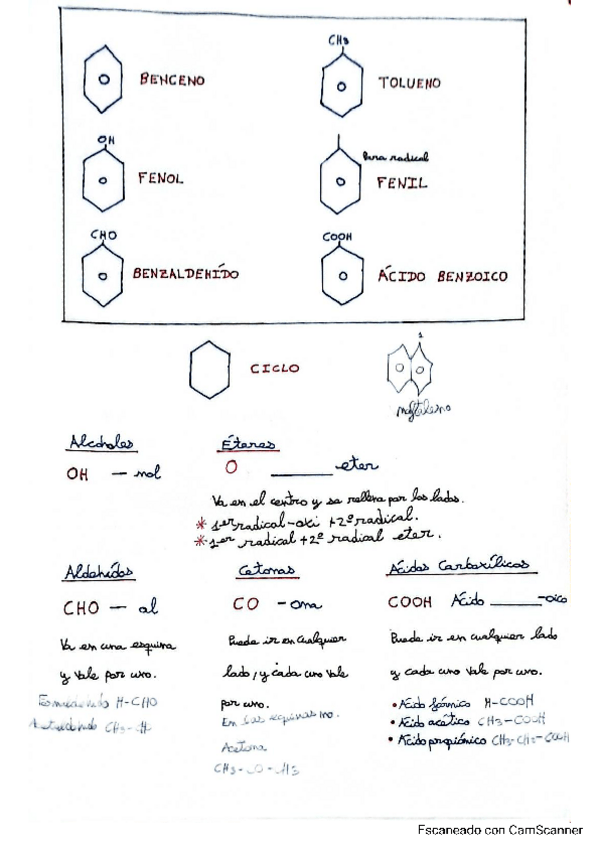 CH3
BENCENO
TOLUENO
OH
FENOL
Para radical
FENIL
CHO
BENZALDEHÍDO
COOH
ÁCIDO BENZOICO
CICLO
1
naftaleno
Alcoholes
OH — nol
Éteres
O ______ eter
Va en el centro y se rellena por los lados.
* 1er radical-oxi + 2º radical.
* 1er radical + 2º radical eter.
Aldehídos
CHO — al
Va en una esquina
y vale por uno.
H-CHO
CH3-
Cetonas
CO -ona
Puede ir en cualquier
lado, y cada uno vale
por uno.
En las esquinas no.
Acetona
CH3-CO-CH3
Ácidos Carboxílicos
COOH Ácido ______-oico
Puede ir en cualquier lado
y cada uno vale por uno.
• Ácido fórmico H-COOH
• Ácido acético CH3-COOH
• Ácido propiónico CH3-CH2-COOH
Escaneado con CamScanner